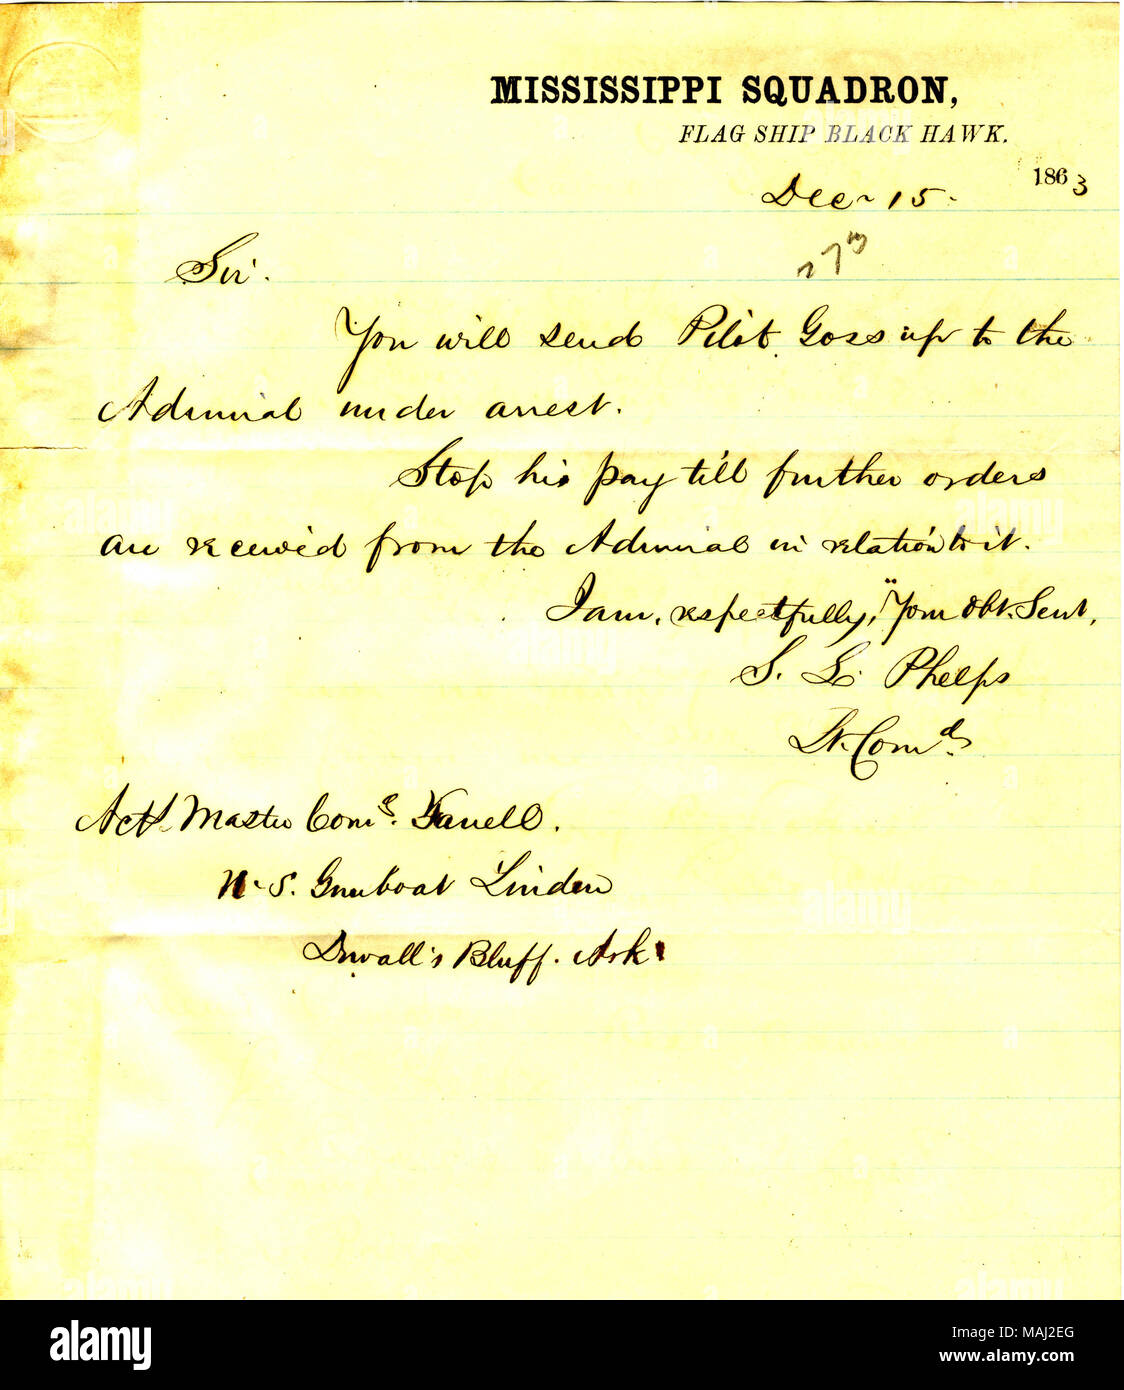 MISSISSIPPI SQUADRON,
FLAG SHIP BLACK HAWK.
Dec 15. 1863
Sir.
You will send Pilot Goss up to the
Admiral under arrest.
Stop his pay till further orders
are receiv'd from the Admiral in relation to it.
I am, respectfully, Your Obt. Servt,
S. L. Phelps
Lt. Comd
Actg Master Comd. Farrell.
U.S. Gunboat Linden
Duvall's Bluff. Ark.
alamy
Image ID: MAJ2EG
www.alamy.com